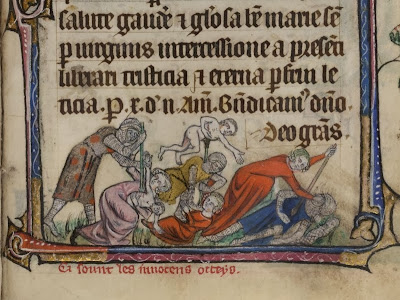 salute gaude͛ ⁊ gl̃osa bẽ marie sẽ
ꝑ uirginis intercessione a presẽti
liberari tristicia ⁊ eterna ꝑfrui le
ticia. P. x̃. dñ. n̄. Am̃. Bñdicam᷒ dño.
Deo gr̃as
Ci sount les innocens occeys.